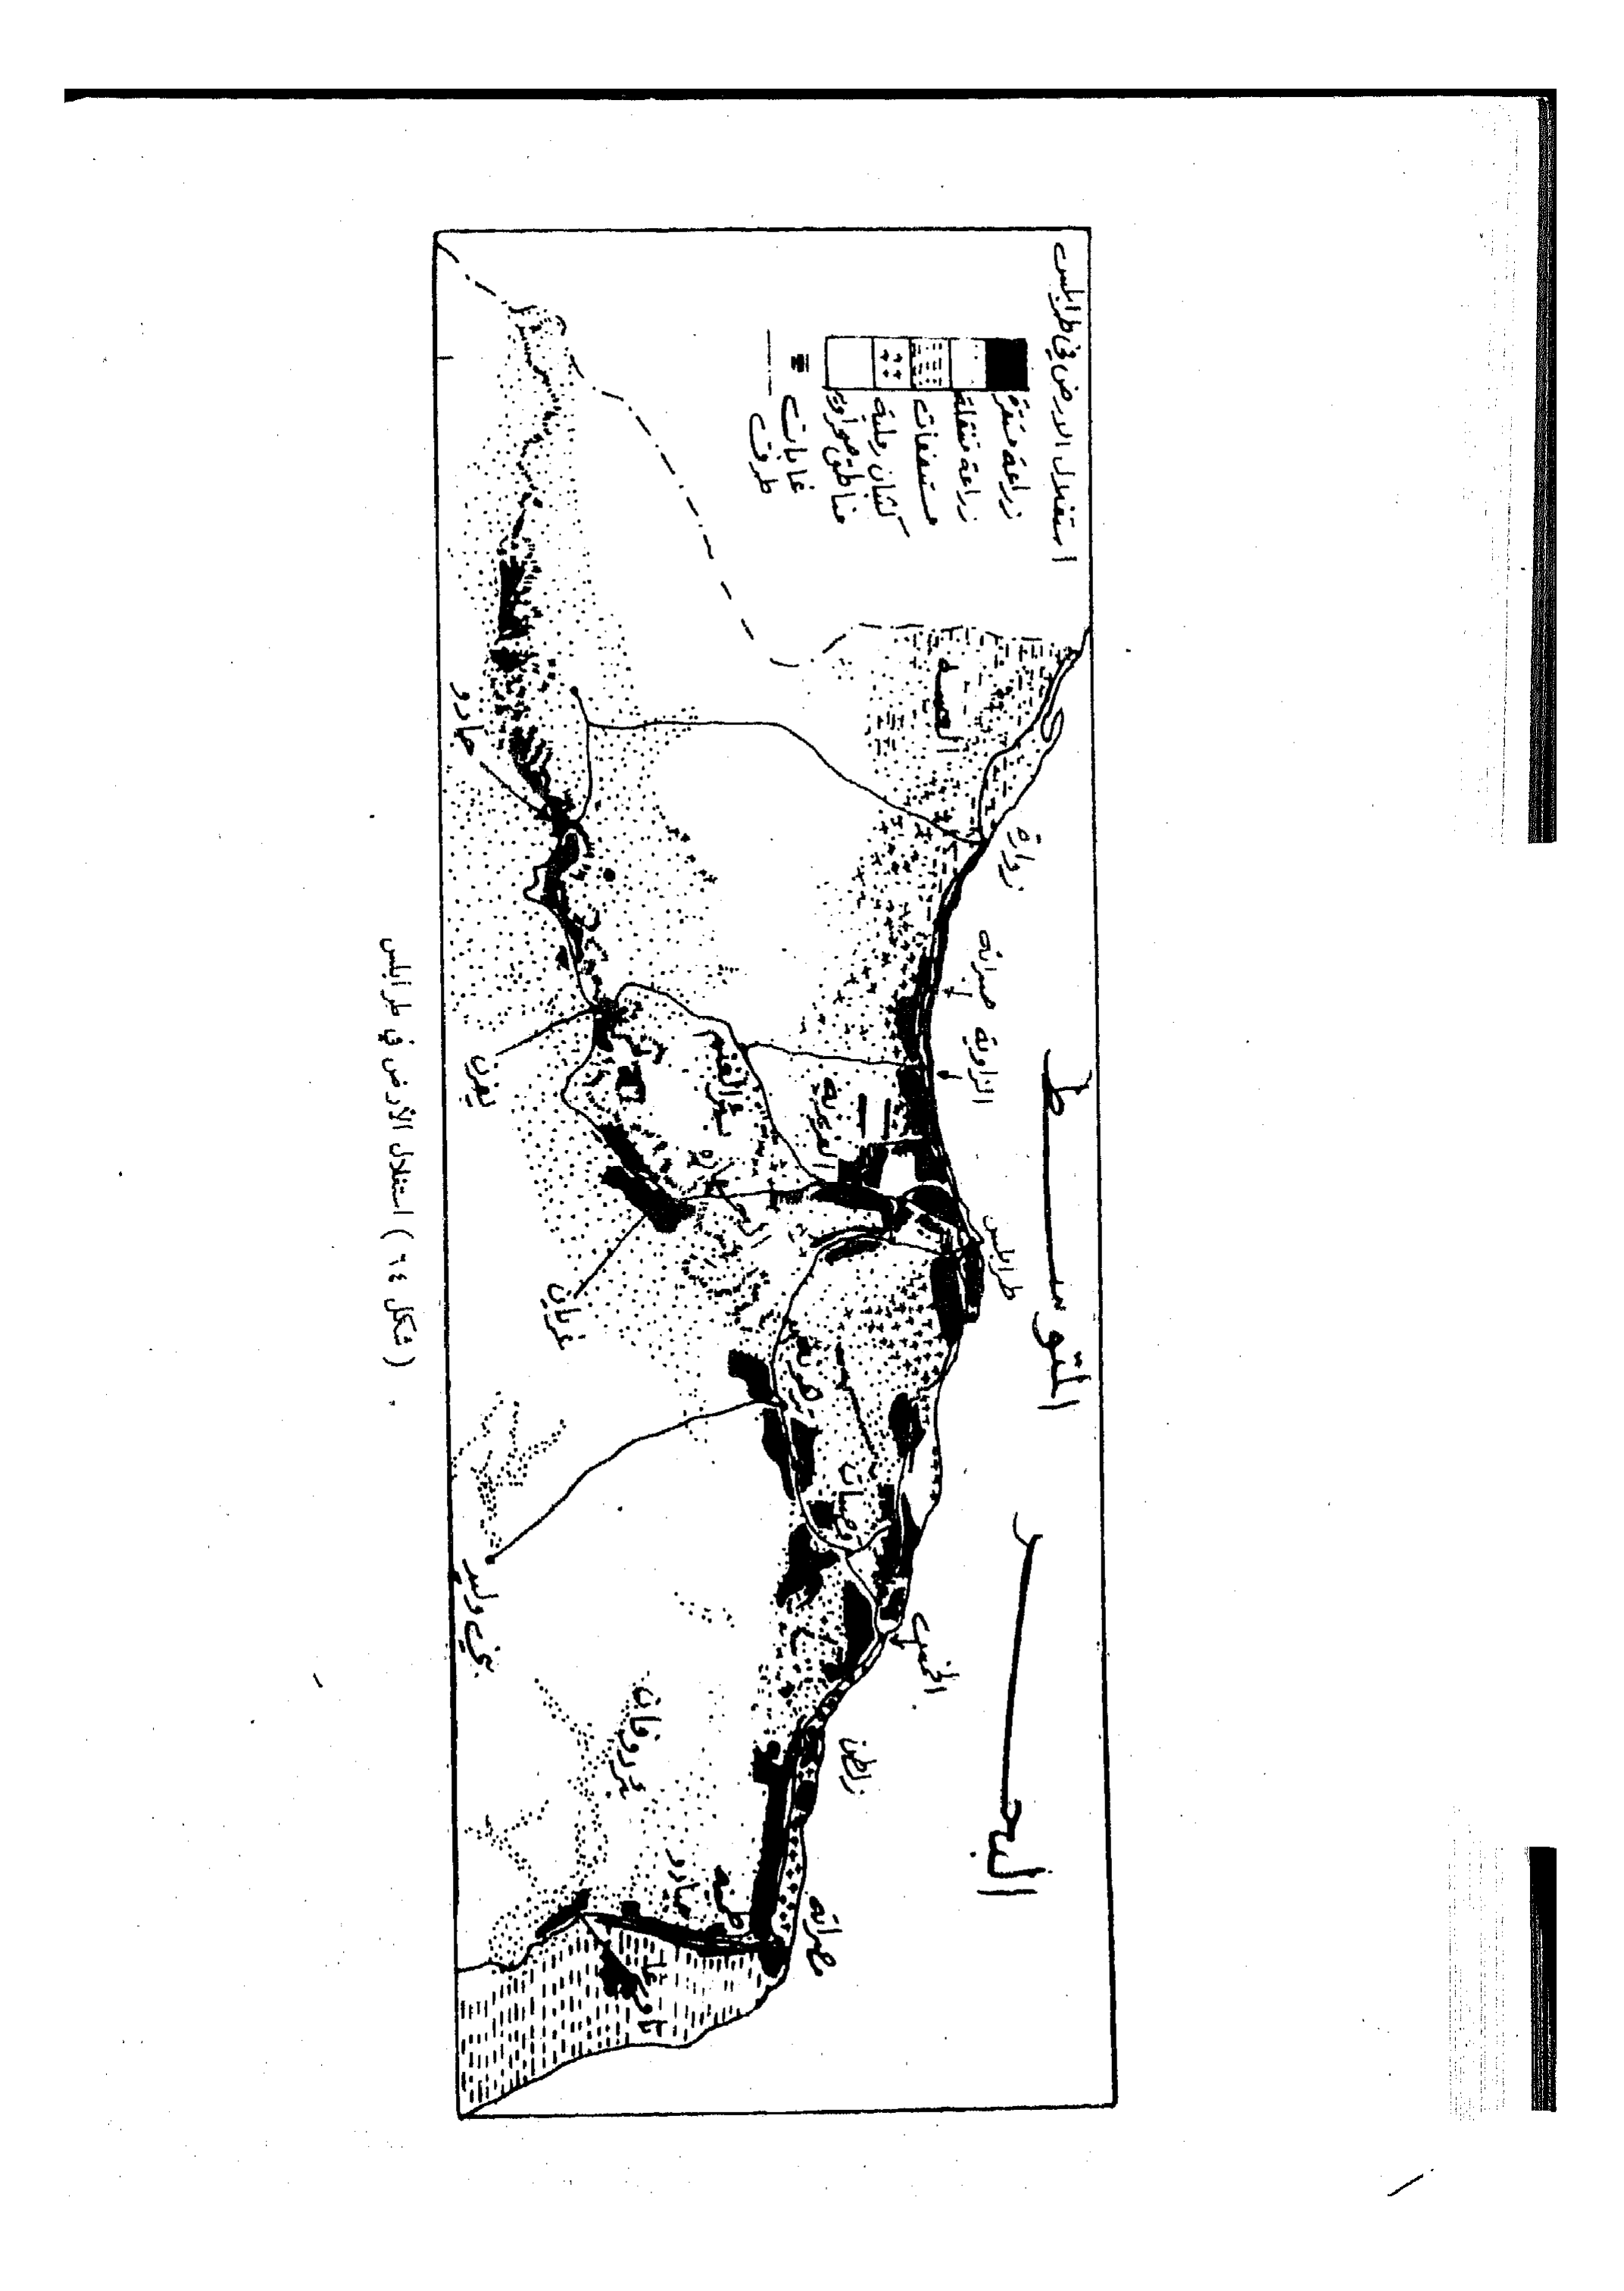 استغلال الارض في طرابلس
زراعة مستقرة
زراعة متنقلة
مستنقعات
كثبان رملية
مناطق صحراوية
غابات
طرق
البحر
المتوسط
زوارة
صبراته
الزاوية
طرابلس
الخمس
زلطن
مصراتة
العسه
العزيزيه
بئر الغنم
جادو
يفرن
غريان
ترهونه
بني وليد
تاورغاء
( شكل ٦٤ ) استغلال الأرض في طرابلس